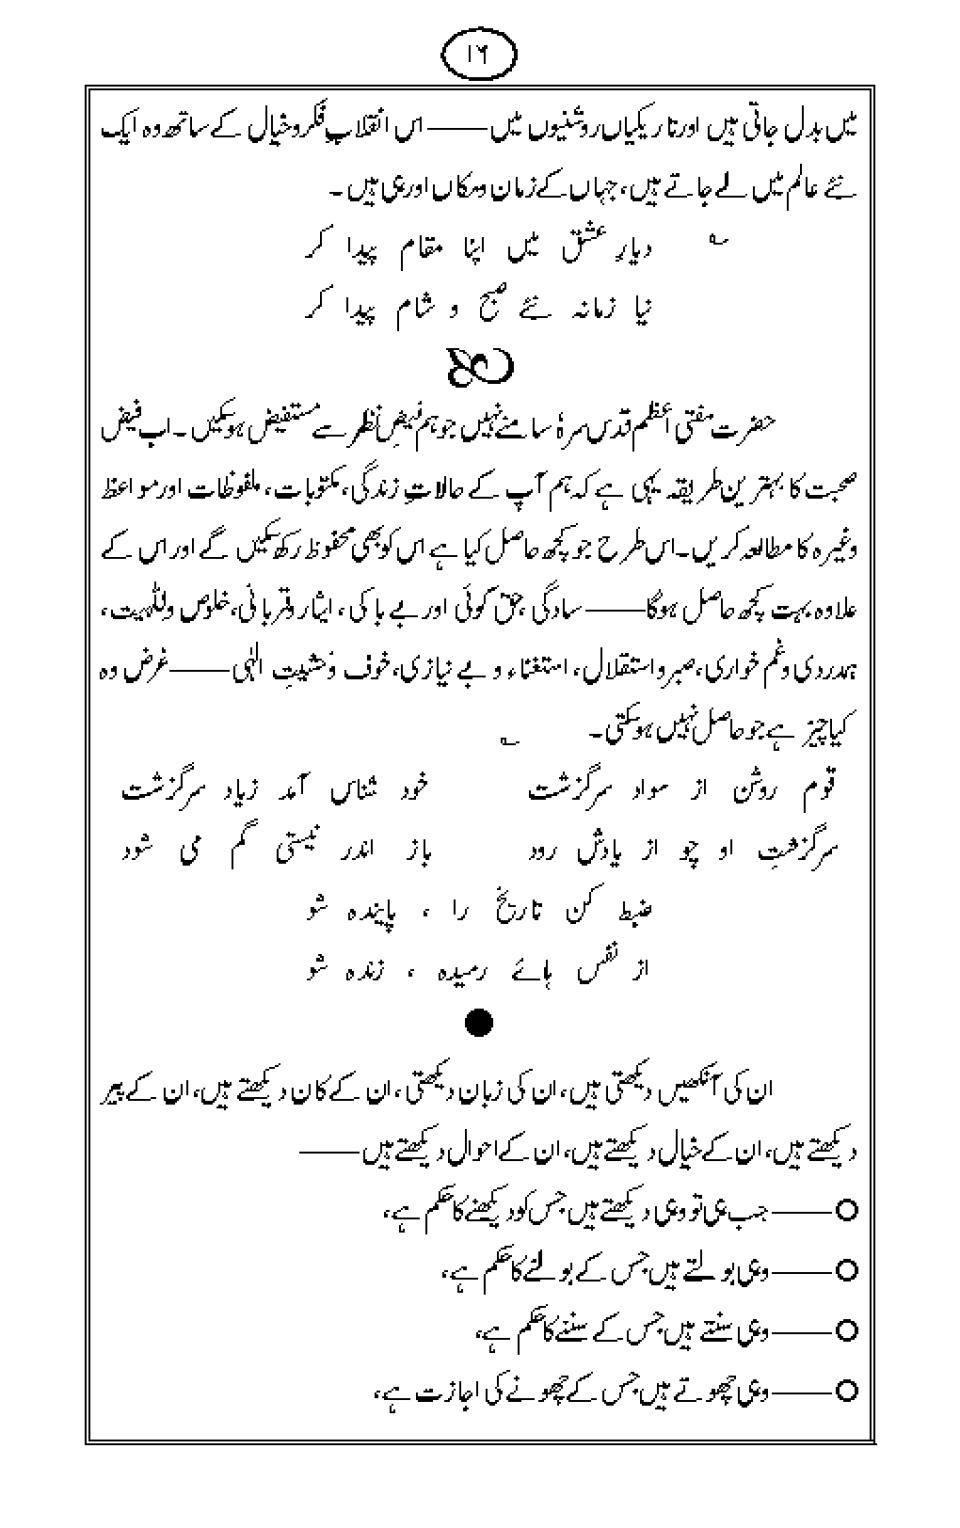 ۱۶
میں بدل جاتی ہیں اور تاریکیاں روشنیوں میں ——— اس انقلابِ فکر و خیال کے ساتھ وہ ایک
نئے عالم میں لے جاتے ہیں، جہاں کے زمان و مکاں اور ہی ہیں۔
؎ دیارِ عشق میں اپنا مقام پیدا کر
نیا زمانہ نئے صبح و شام پیدا کر
حضرت مفتی اعظم قدس سرہٗ سامنے نہیں جو ہم فیضِ نظر سے مستفیض ہو سکیں۔ اب فیض
صحبت کا بہترین طریقہ یہی ہے کہ ہم آپ کے حالاتِ زندگی، مکتوبات، ملفوظات اور مواعظ
وغیرہ کا مطالعہ کریں۔ اس طرح جو کچھ حاصل کیا ہے اس کو بھی محفوظ رکھ سکیں گے اور اس کے
علاوہ بہت کچھ حاصل ہوگا ——— سادگی، حق گوئی اور بے باکی، ایثار و قربانی، خلوص و للّٰہیت،
ہمدردی و غم خواری، صبر و استقلال، استغناء و بے نیازی، خوف و خشیتِ الٰہی ——— غرض وہ
کیا چیز ہے جو حاصل نہیں ہو سکتی۔ ؎
قوم روشن از سواد سرگزشت خود شناس آمد زیاد سرگزشت
سرگزشتِ او چو از یادش رود باز اندر نیستی گم می شود
ضبط کن تاریخ را ، پایندہ شو
از نفس ہائے رمیدہ ، زندہ شو
ان کی آنکھیں دیکھتی ہیں، ان کی زبان دیکھتی، ان کے کان دیکھتے ہیں، ان کے پیر
دیکھتے ہیں، ان کے خیال دیکھتے ہیں، ان کے احوال دیکھتے ہیں ———
○ ——— جب ہی تو وہی دیکھتے ہیں جس کو دیکھنے کا حکم ہے،
○ ——— وہی بولتے ہیں جس کے بولنے کا حکم ہے،
○ ——— وہی سنتے ہیں جس کے سننے کا حکم ہے،
○ ——— وہی چھوتے ہیں جس کے چھونے کی اجازت ہے،